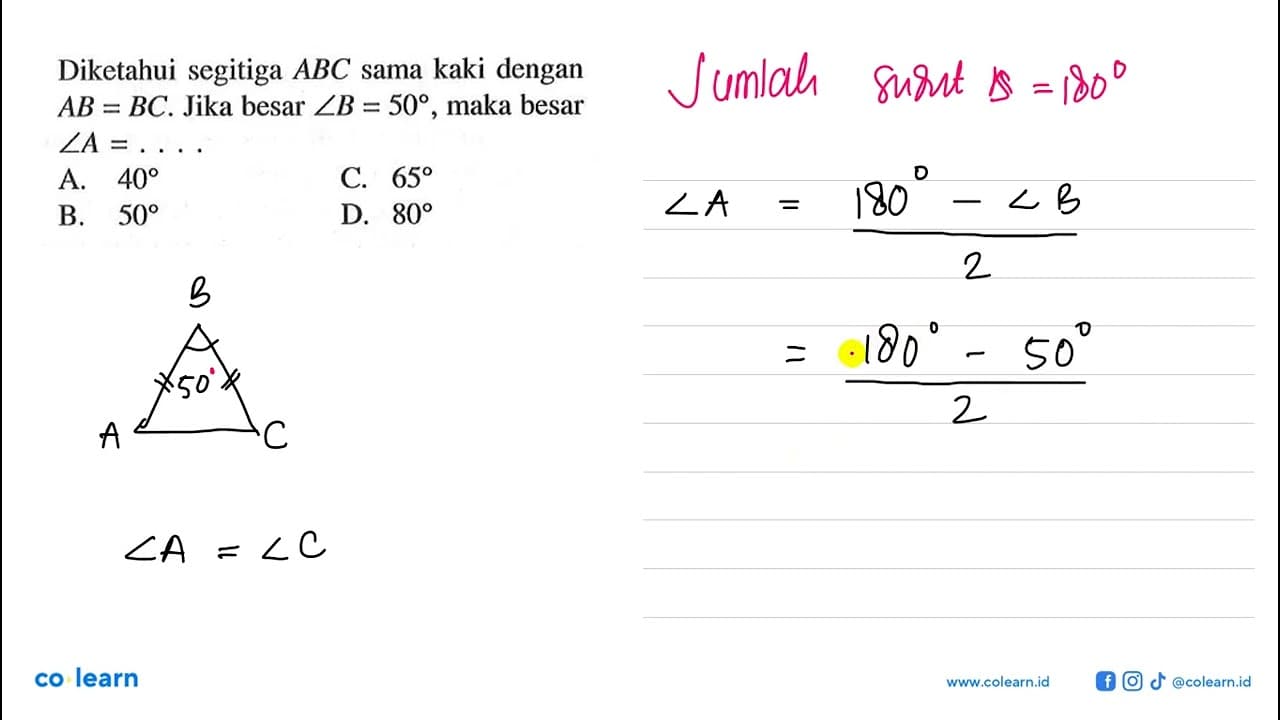 Diketahui segitiga ABC sama kaki dengan
AB = BC. Jika besar ∠B = 50°, maka besar
∠A = . . . .
A. 40° C. 65°
B. 50° D. 80°
B
50°
A C
∠A = ∠C
Jumlah sudut Δ = 180°
∠A = 180° - ∠B
2
= 180° - 50°
2
co learn
www.colearn.id @colearn.id